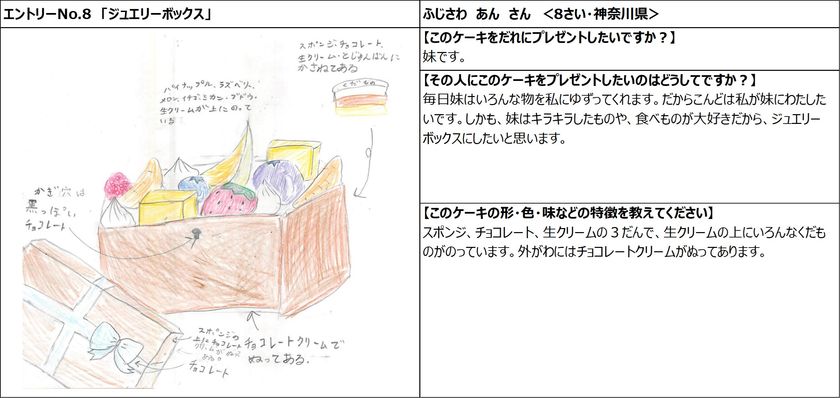 エントリーNo.8 「ジュエリーボックス」
ふじさわ あん さん <8さい・神奈川県>
【このケーキをだれにプレゼントしたいですか?】
妹です。
【その人にこのケーキをプレゼントしたいのはどうしてですか?】
毎日妹はいろんな物を私にゆずってくれます。だからこんどは私が妹にわたした
いです。しかも、妹はキラキラしたものや、食べものが大好きだから、ジュエリー
ボックスにしたいと思います。
【このケーキの形・色・味などの特徴を教えてください】
スポンジ、チョコレート、生クリームの3だんで、生クリームの上にいろんなくだも
のがのっています。外がわにはチョコレートクリームがぬってあります。
スポンジ・チョコレート、
生クリーム・とじゅんばんに
かさねてある
くだもの
パイナップル、ラズベリー、
メロン、イチゴ、ミカン、ブドウ、
生クリームが上にのって
いる
かぎ穴は
黒っぽい
チョコレート
スポンジの
上にチョコレート
クリームが
チョコレート
チョコレートクリームで
ぬってある.